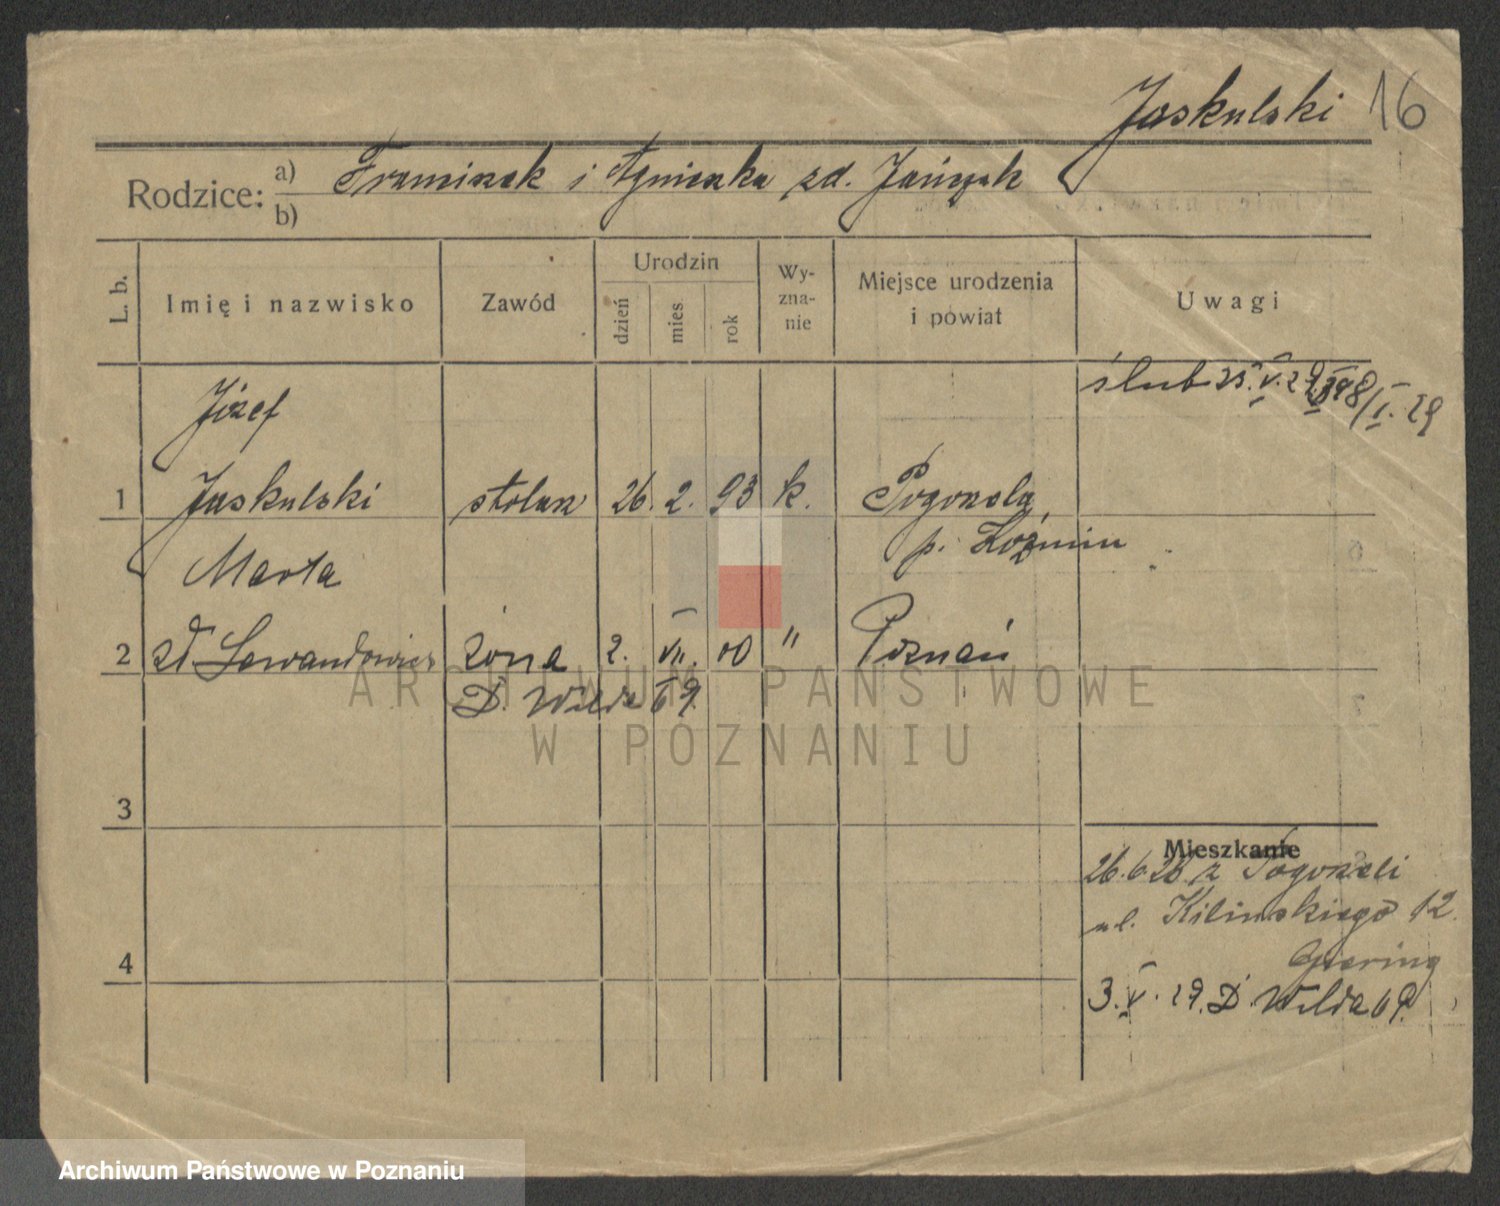 Jaskulski 16
Rodzice: a) Franciszek i Agnieszka zd.
b)
L. b.
Imię i nazwisko
Zawód
Urodzin
dzień
mies
rok
Wy-
zna-
nie
Miejsce urodzenia
i powiat
Uwagi
ślub 25.V.29
Józef
1 Jaskulski stolarz 26. 2. 93 k. Pogorzela
p. Koźmin
Marta
2 zd. Lewandowicz żona 2. VII. 00 " Poznań
D. Wilda 69.
3
Mieszkanie
26.6.26 z Pogorzeli
ul. Kilinskiego 12.
4
3.V.29. D. Wilda 69.
ARCHIWUM PAŃSTWOWE
W POZNANIU
Archiwum Państwowe w Poznaniu